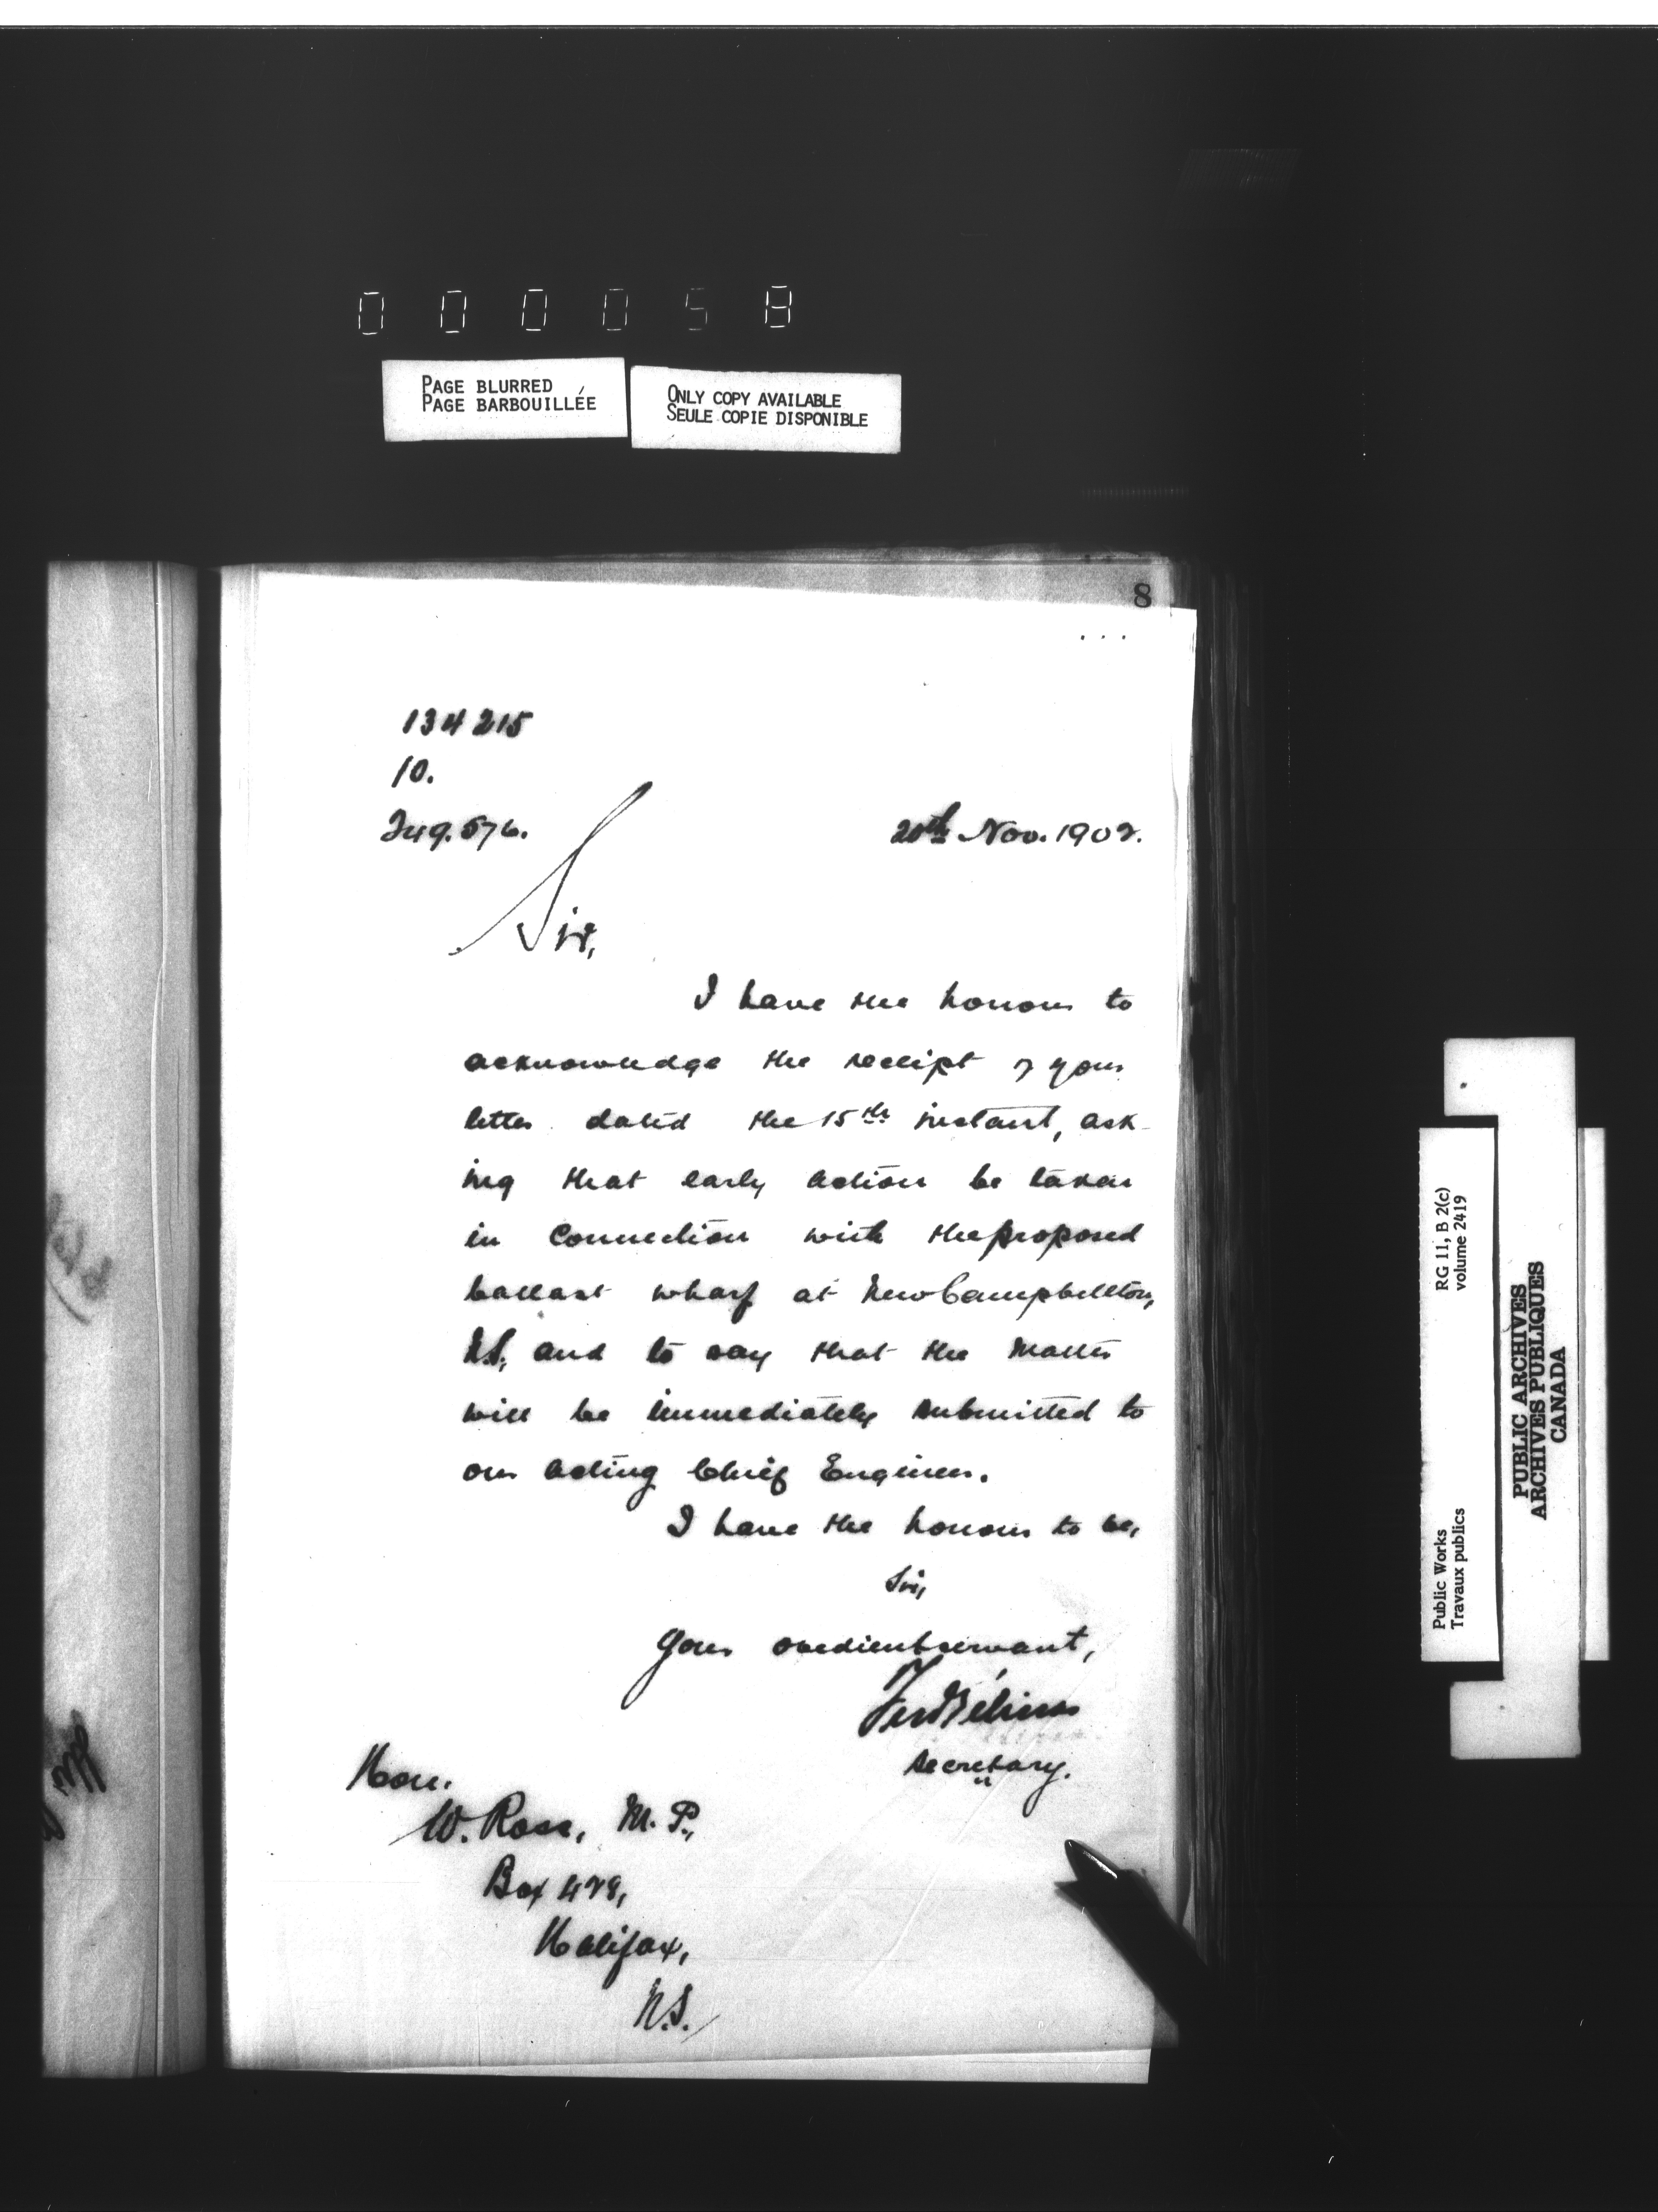 000058
PAGE BLURRED
PAGE BARBOUILLÉE
ONLY COPY AVAILABLE
SEULE COPIE DISPONIBLE
8
134215
10.
249.576.
20th Nov. 1902.
Sir,
I have the honour to
acknowledge the receipt of your
letter dated the 15th instant, ask-
ing that early action be taken
in connection with the proposed
ballast wharf at New Campbellton,
N.S., and to say that the matter
will be immediately submitted to
our acting Chief Engineer.
I have the honour to be,
Sir,
Your obedient servant,
Secretary.
Hon.
W. Ross, M. P.,
Box 429,
Halifax,
N.S.
Public Works
Travaux publics
RG 11, B 2(c)
volume 2419
PUBLIC ARCHIVES
ARCHIVES PUBLIQUES
CANADA